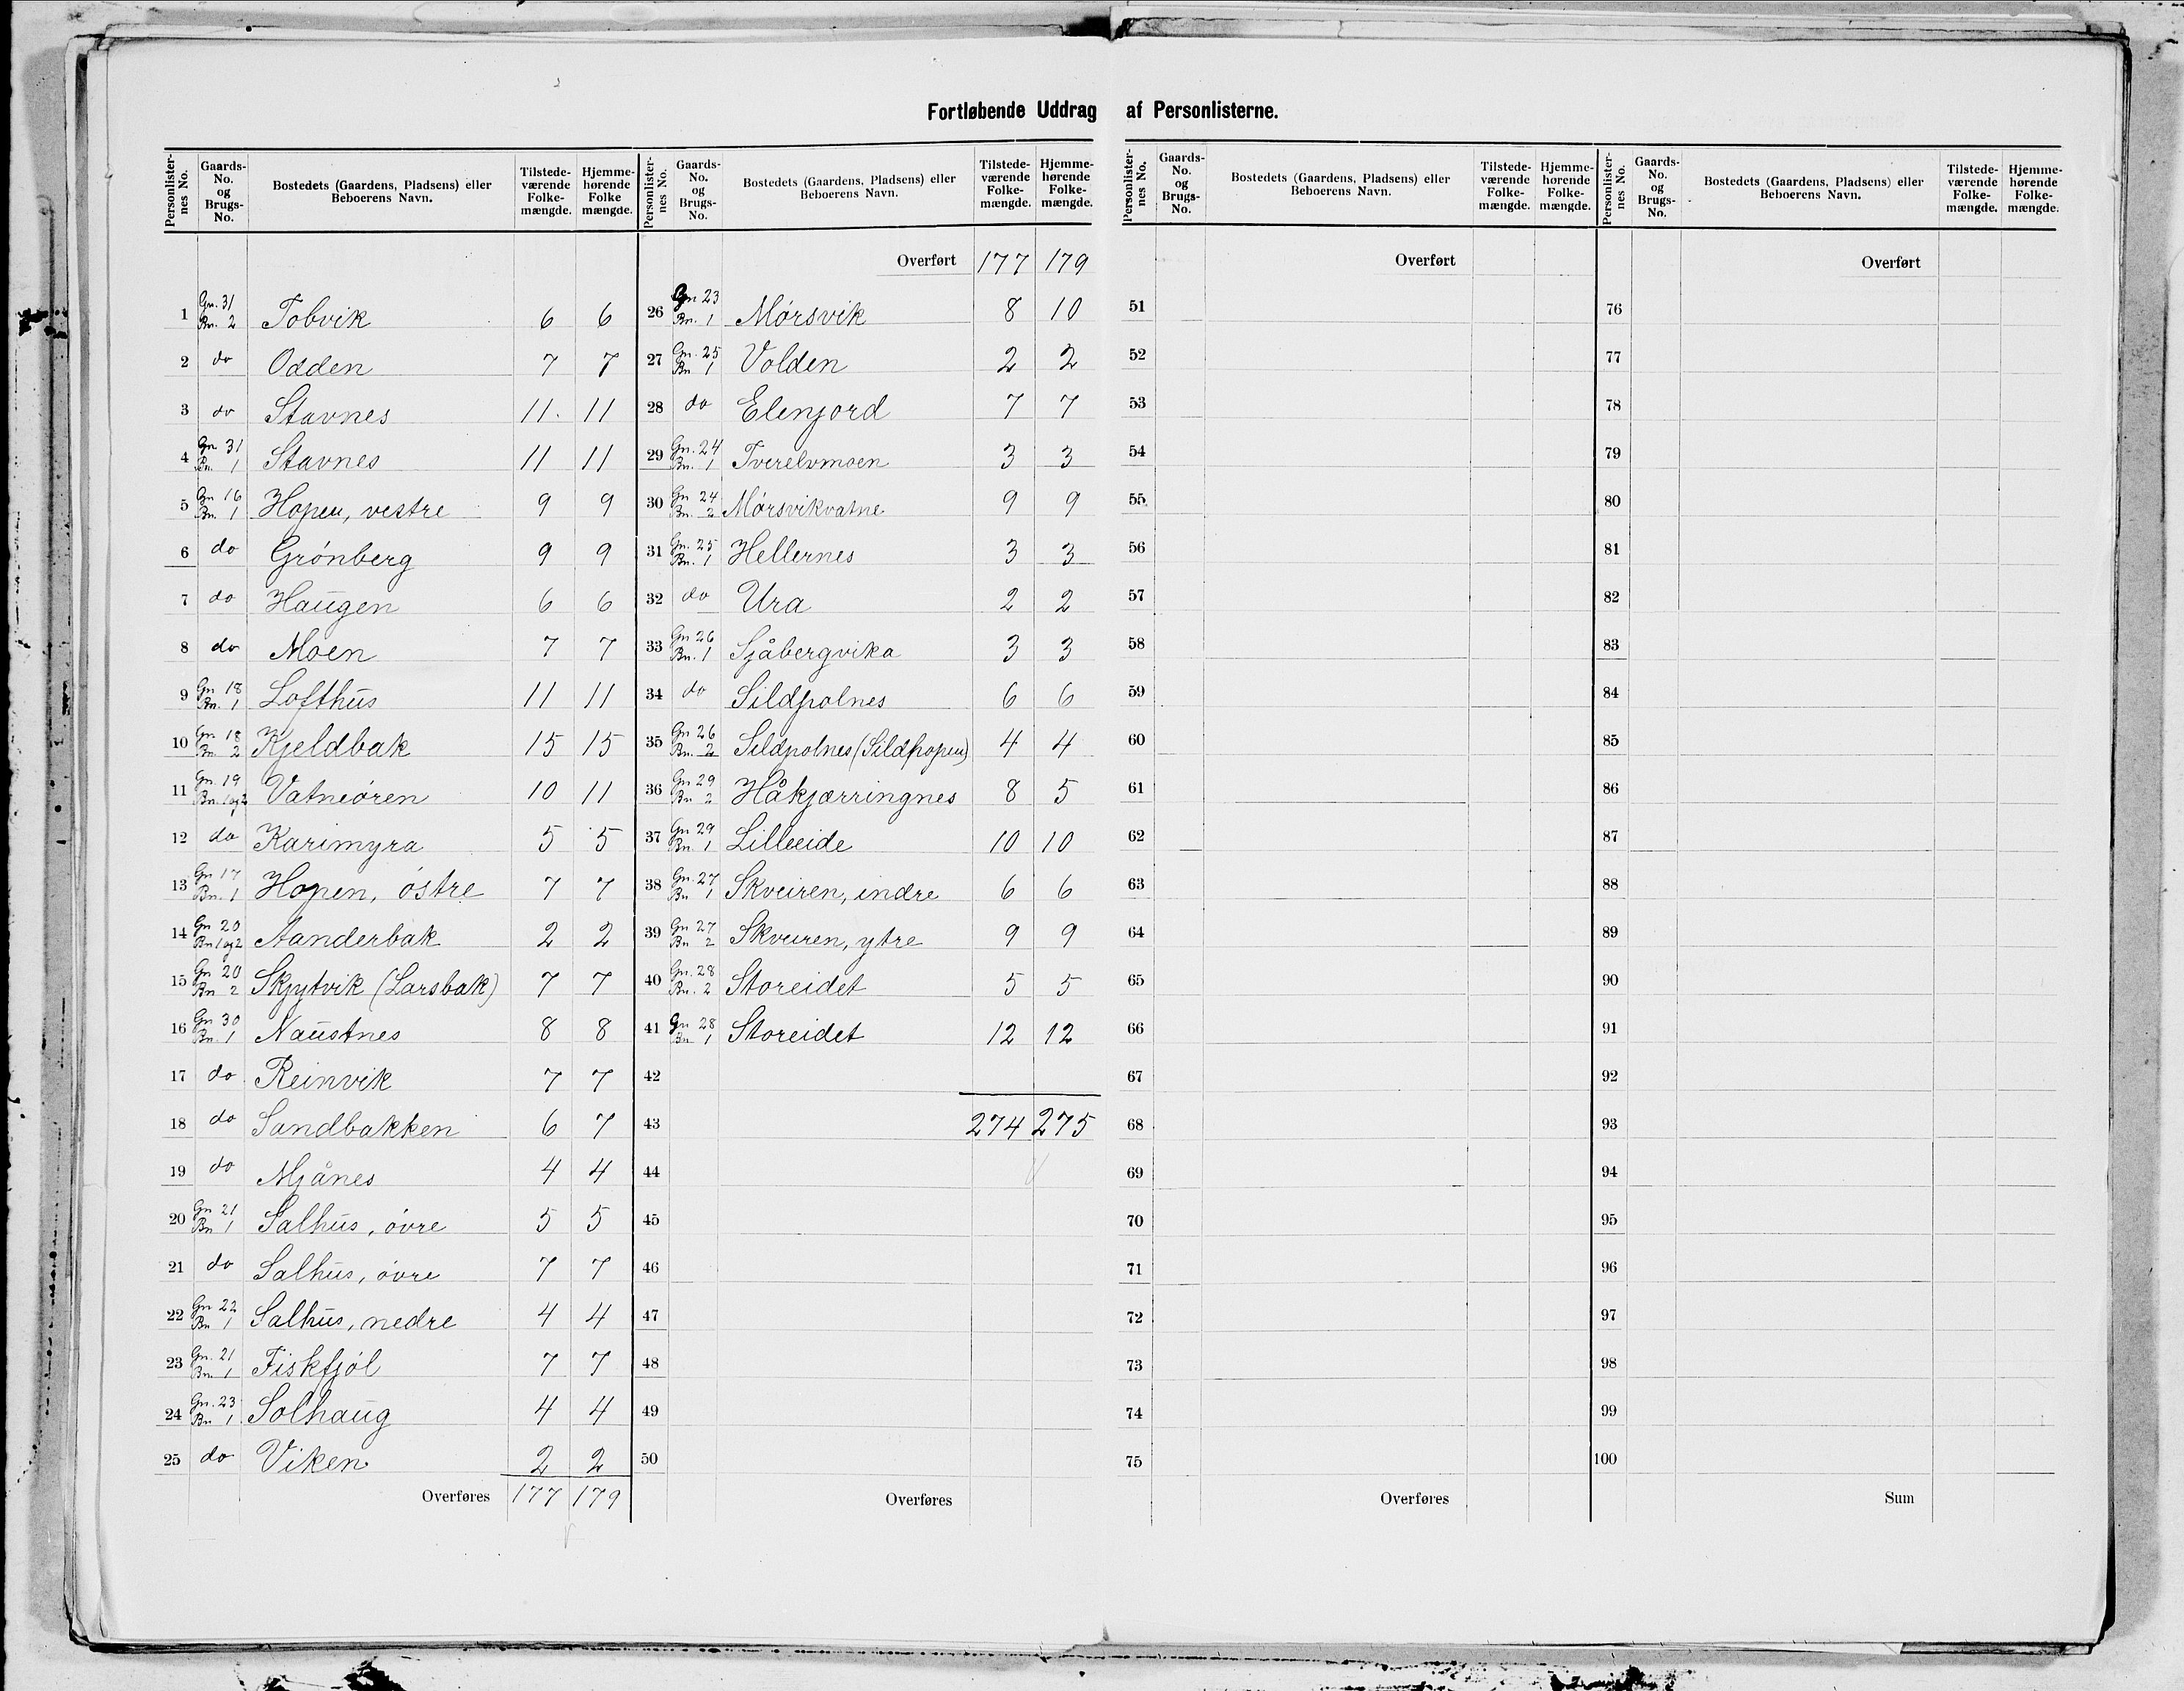 Fortløbende Uddrag af Personlisterne.
Personlister-nes No. Gaards-No. og Brugs-No. Bostedets (Gaardens, Pladsens) eller Beboerens Navn. Tilstede-værende Folke-mængde. Hjemme-hørende Folke mængde.
1 Gn. 31 Bn. 2 Tobvik 6 6
2 do Odden 7 7
3 do Stavnes 11. 11
4 Gn 31 Bn. 1 Stavnes 11 11
5 Gn 16 Bn. 1 Hopen, vestre 9 9
6 do Grónberg 9 9
7 do Haugen 6 6
8 do Moen 7 7
9 Gn 18 Bn. 1 Lofthus 11 11
10 Gn 18 Bn 2 Kjeldbak 15 15
11 Gn. 19 Bn. 1 og 2 Vatneóren 10 11
12 do Karimyra 5 5
13 Gn 17 Bn. 1 Hopen, óstre 7 7
14 Gn 20 Bn 1 og 2 Aanderbak 2 2
15 Gn 20 Bn 2 Skjytvik (Larsbak) 7 7
16 Gn 30 Bn. 1 Naustnes 8 8
17 do Reinvik 7 7
18 do Sandbakken 6 7
19 do Mjånes 4 4
20 Gn 21 Bn 1 Salhus, óvre 5 5
21 do Salhus, óvre 7 7
22 Gn 22 Bn 1 Salhus, nedre 4 4
23 Gn. 21 Bn. 1 Fiskfjól 7 7
24 Gn. 23 Bn 1 Solhaug 4 4
25 do Viken 2 2
Overføres 177 179
Personlister-nes No. Gaards-No. og Brugs-No. Bostedets (Gaardens, Pladsens) eller Beboerens Navn. Tilstede-værende Folke-mængde. Hjemme-hørende Folke-mængde.
Overført 177 179
26 Gn 23 Bn. 1 Mórsvik 8 10
27 Gn. 25 Bn 1 Volden 2 2
28 do Elenjord 7 7
29 Gn. 24 Bn. 1 Tverelvmoen 3 3
30 Gn 24 Bn. 2 Mórsvikvatne 9 9
31 Gn. 25 Bn. 1 Hellernes 3 3
32 do Ura 2 2
33 Gn 26 Bn. 1 Sjåbergvika 3 3
34 do Sildpolnes 6 6
35 Gn 26 Bn. 2 Sildpolnes (Sildhopen) 4 4
36 Gn 29 Bn 2 Håkjærringnes 8 5
37 Gn 29 Bn. 1 Lilleeide 10 10
38 Gn. 27 Bn 1 Skveiren, indre 6 6
39 Gn 27 Bn 2 Skveiren, ytre 9 9
40 Gn. 28 Bn. 2 Storeidet 5 5
41 Gn 28 Bn 1 Storeidet 12 12
42
43 274 275
44
45
46
47
48
49
50
Overføres
Personlister-nes No. Gaards-No. og Brugs-No. Bostedets (Gaardens, Pladsens) eller Beboerens Navn. Tilstede-værende Folke-mængde. Hjemme-hørende Folke-mængde.
Overført
51
52
53
54
55
56
57
58
59
60
61
62
63
64
65
66
67
68
69
70
71
72
73
74
75
Overføres
Personlister-nes No. Gaards-No. og Brugs-No. Bostedets (Gaardens, Pladsens) eller Beboerens Navn. Tilstede-værende Folke-mængde. Hjemme-hørende Folke-mængde.
Overført
76
77
78
79
80
81
82
83
84
85
86
87
88
89
90
91
92
93
94
95
96
97
98
99
100
Sum